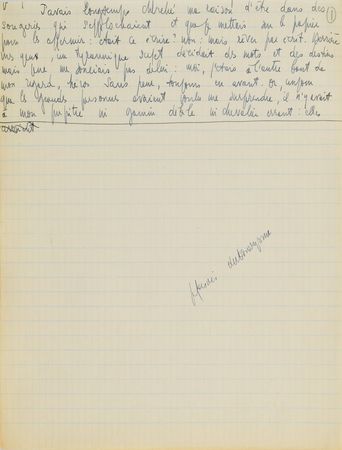 J'avais longtemps cherché ma raison d'être dans des ①
songeries qui s'effilochaient et que je mettais sur le papier
pour les affermir : était ce écrire? non : mais rêver par écrit. Derrière
mes yeux, un tyrannique sujet décidait des mots et des destins
mais je ne me souciais pas de lui : moi, j'étais à l'autre bout de
mon regard, héros sans peur, toujours en avant. Or, un jour
que les grandes personnes avaient voulu me surprendre, il n'y avait
à mon pupitre ni gamin docile ni chevalier errant : elles